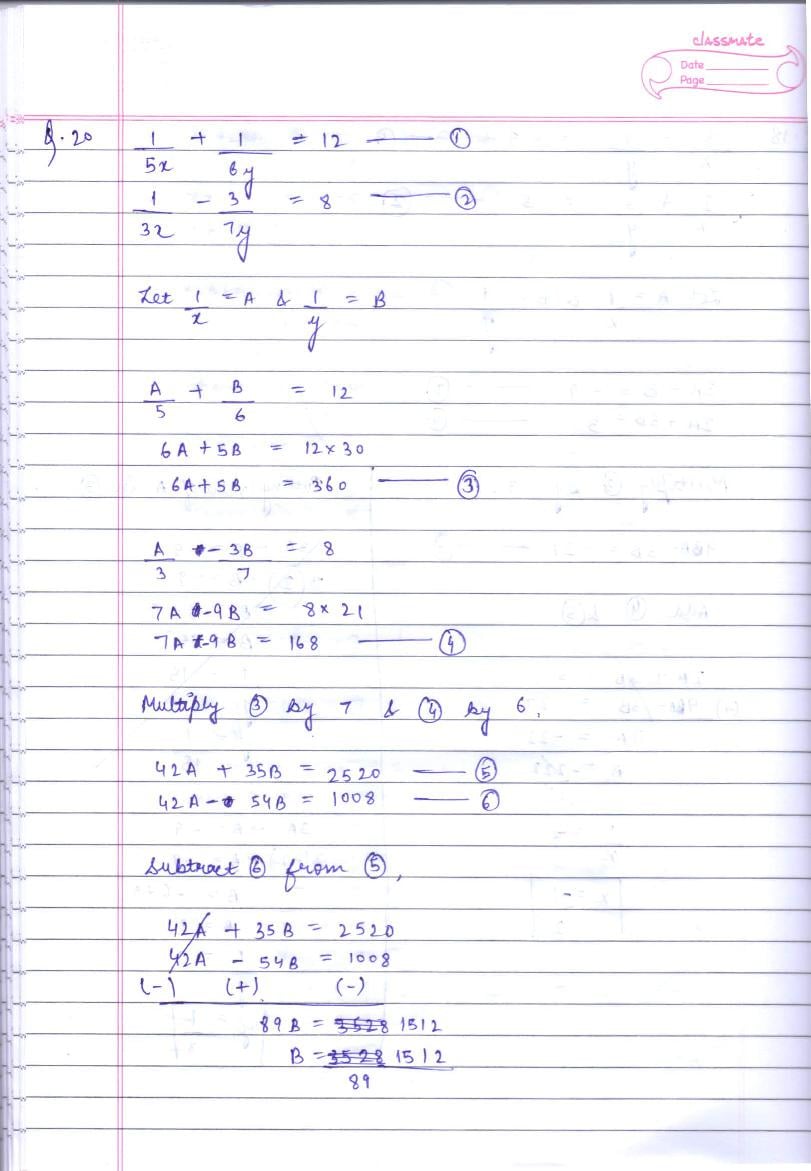 classmate
Date
Page
Q.20 1/5x + 1/6y = 12 —— ①
1/3x - 3/7y = 8 —— ②
Let 1/x = A & 1/y = B
A/5 + B/6 = 12
6A + 5B = 12 × 30
6A + 5B = 360 —— ③
A/3 - 3B/7 = 8
7A - 9B = 8 × 21
7A - 9B = 168 —— ④
Multiply ③ by 7 & ④ by 6.
42A + 35B = 2520 —— ⑤
42A - 54B = 1008 —— ⑥
Subtract ⑥ from ⑤,
42A + 35B = 2520
42A - 54B = 1008
(-) (+) (-)
89B = 3528 1512
B = 3528 1512
89